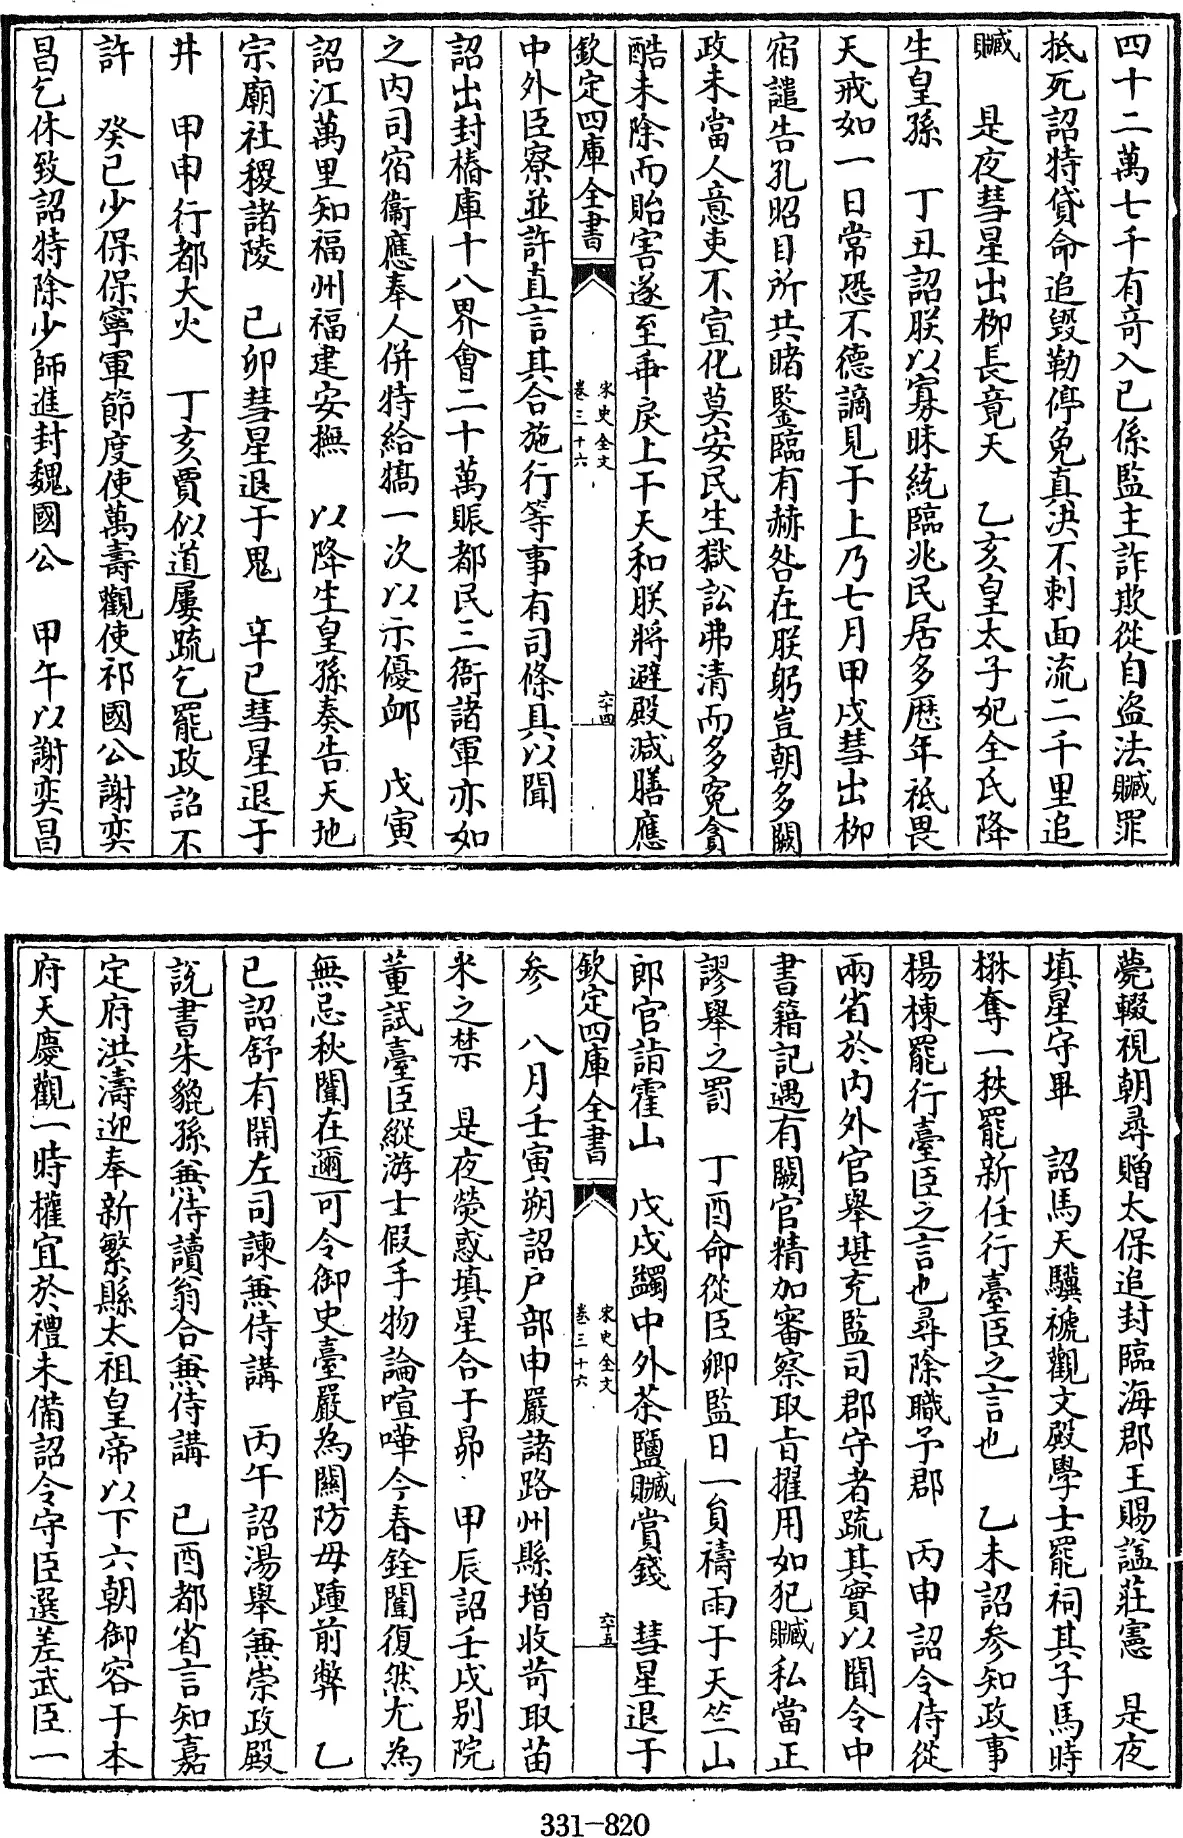 四十二萬七千有奇入已係監主詐欺從自盜法贓罪
抵死詔特貸命追毀勒停免真決不刺面流二千里追
贓　是夜彗星出柳長竟天　乙亥皇太子妃全氏降
生皇孫　丁丑詔朕以寡昧統臨兆民居多歴年祗畏
天戒如一日常恐不德謫見于上乃七月甲戌彗出柳
宿譴告孔昭目所共睹監臨有赫咎在朕躬豈朝多闕
政未當人意吏不宣化莫安民生獄訟弗清而多寃貪
酷未除而貽害遂至乖戾上干天和朕將避殿減膳應
欽定四庫全書　宋史全文卷三十六　六十四
中外臣寮並許直言其合施行等事有司條具以聞
詔出封樁庫十八界會二十萬賑都民三衙諸軍亦如
之内司宿衞應奉人併特給犒一次以示優邺　戊寅
詔江萬里知福州福建安撫　以降生皇孫奏告天地
宗廟社稷諸陵　己卯彗星退于鬼　辛巳彗星退于
井　甲申行都大火　丁亥賈似道屢疏乞罷政詔不
許　癸巳少保保寧軍節度使萬壽觀使祁國公謝奕
昌乞休致詔特除少師進封魏國公　甲午以謝奕昌
薨輟視朝尋贈太保追封臨海郡王賜諡莊憲　是夜
填星守畢　詔馬天驥褫觀文殿學士罷祠其子馬時
楙奪一秩罷新任行臺臣之言也　乙未詔參知政事
楊棟罷行臺臣之言也尋除職予郡　丙申詔令侍從
兩省於内外官舉堪充監司郡守者疏其實以聞令中
書籍記遇有闕官精加審察取旨擢用如犯贓私當正
謬舉之罰　丁酉命從臣卿監日一員禱雨于天竺山
郎官詣霍山　戊戌蠲中外茶鹽贓賞錢　彗星退于
欽定四庫全書　宋史全文卷三十六　六十五
参　八月壬寅朔詔户部申嚴諸路州縣增收苛取苗
米之禁　是夜熒惑填星合于昴　甲辰詔壬戌别院
董試臺臣縱游士假手物論喧嘩今春銓闈復然尤為
無忌秋闈在邇可令御史臺嚴為關防毋踵前弊　乙
巳詔舒有開左司諫兼侍講　丙午詔湯舉兼崇政殿
説書朱貔孫兼侍讀翁合兼侍講　己酉都省言知嘉
定府洪濤迎奉新繁縣太祖皇帝以下六朝御容于本
府天慶觀一時權宜於禮未備詔令守臣選差武臣一
331-820